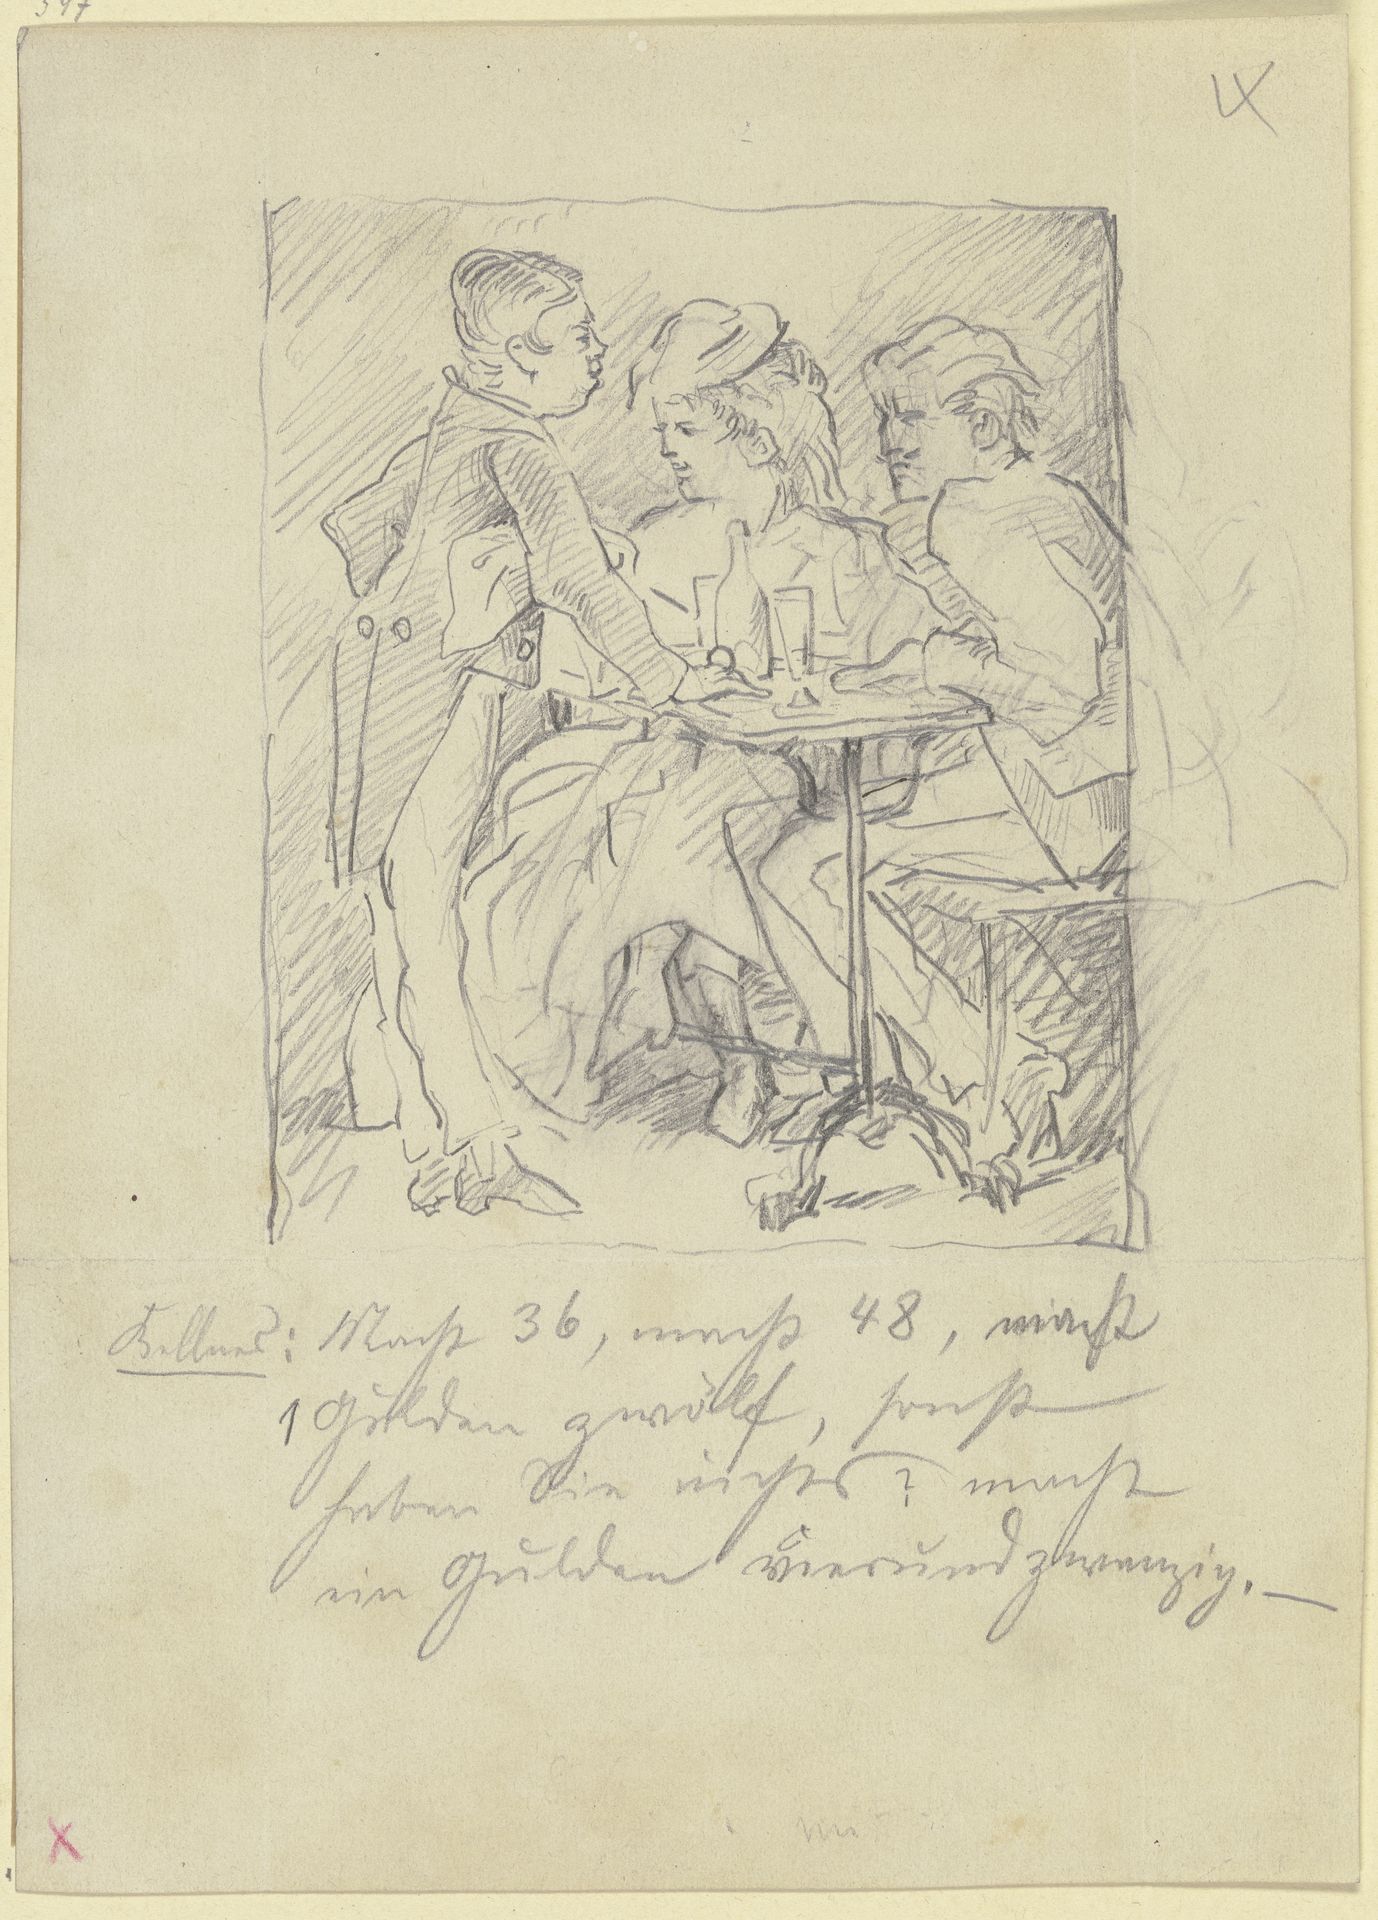 Kellner: Macht 36, macht 48, macht
1 Gulden zwölf, sonst
haben Sie nichts? macht
ein Gulden vierundzwanzig. —